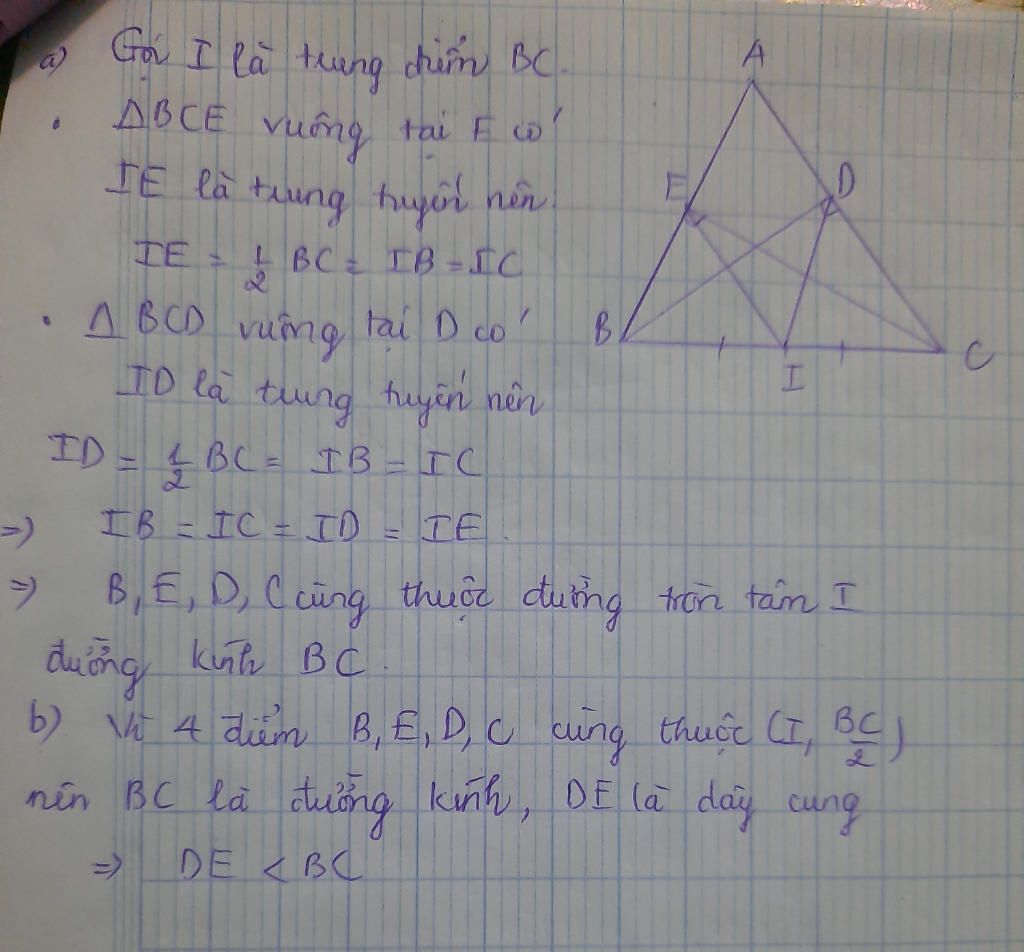 a) Gọi I là trung điểm BC.
• ΔBCE vuông tại E có
IE là trung tuyến nên
IE = 1/2 BC = IB = IC
• Δ BCD vuông tại D có
ID là trung tuyến nên
ID = 1/2 BC = IB = IC
=> IB = IC = ID = IE.
=> B, E, D, C cùng thuộc đường tròn tâm I
đường kính BC.
b) Vì 4 điểm B, E, D, C cùng thuộc (I, BC/2)
nên BC là đường kính, DE là dây cung
=> DE < BC
A
E
D
B
I
C